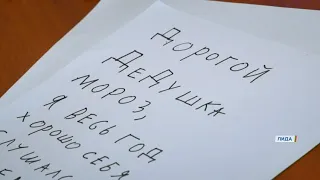 ДОРОГОЙ
ДЕДУШКА
МОРОЗ,
Я ВЕСЬ ГОД
ХОРОШО СЕБЯ
ЛИДА